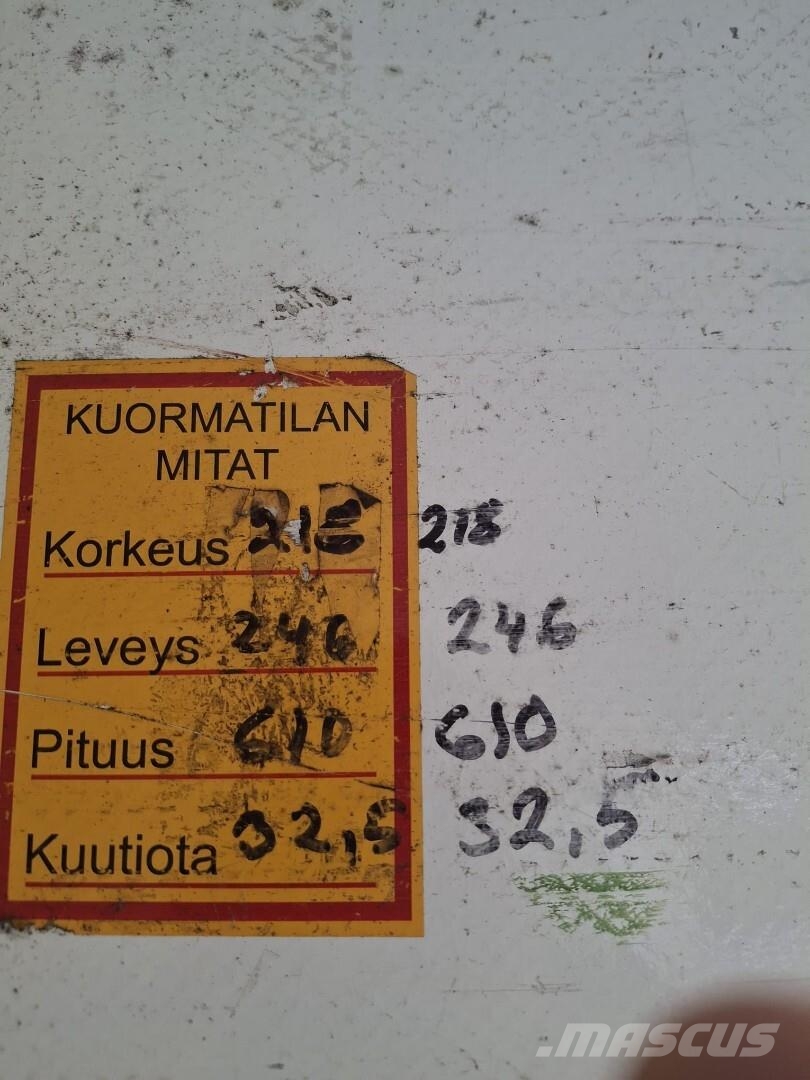 KUORMATILAN
MITAT
Korkeus 218 218
Leveys 246 246
Pituus 610 610
Kuutiota 32,5 32,5
.MASCUS